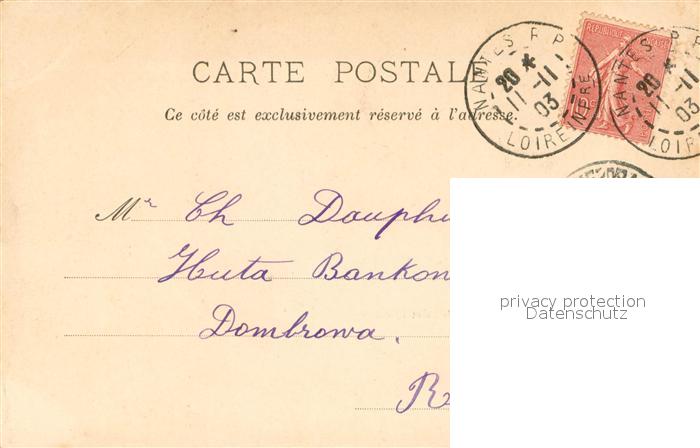 CARTE POSTALE
Ce côté est exclusivement réservé à l'adresse.
NANTES R.P.
20 *
11-11
03
LOIRE INFRE
REPUBLIQUE
NANTES R.P.
20 *
11-11
03
LOIR
Mr Ch Dauphi
Huta Bankow
Dombrowa.
R
privacy protection
Datenschutz